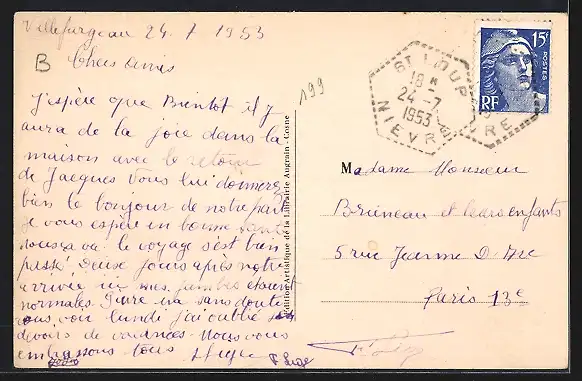 Villefargeau 24.7.1953
B
Chers amis
199
J'espère que Bientôt il y
aura de la joie dans la
maison avec le retour
de Jacques Vous lui donnerez
bien le bonjour de notre part
Je vous espère en bonne santé
nous ça va. le voyage s'est bien
passé Deux jours après notre
arrivée ici mes jambes étaient
normales. sans doute
vous voir lundi j'ai oublié
devoirs de vacances. Nous vous
embrassons tous
Edition Artistique de la Librairie Augrain - Cosne
ST LOUP
18 H
24-7
1953
NIEVRE
15F
POSTES
RF
Madame Monsieur
Bruneau et leurs enfants
5 rue Jeanne D'Arc
Paris 13e